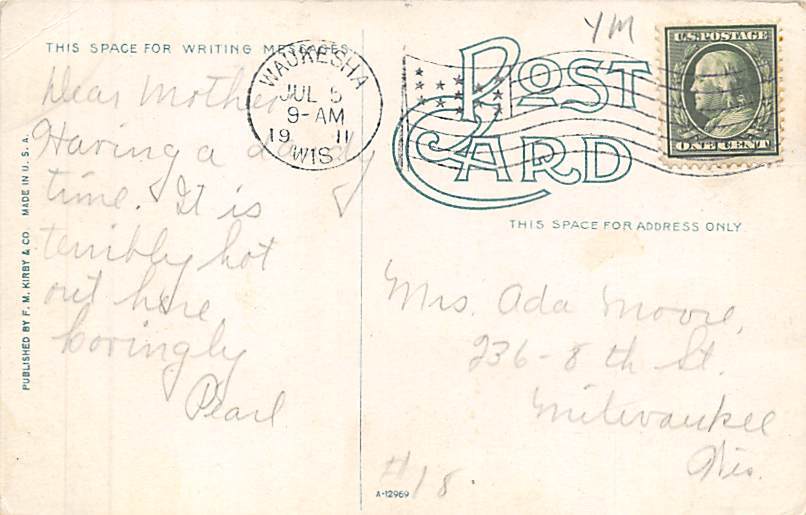 THIS SPACE FOR WRITING MESSAGES
Dear Mother
Having a dandy
time. It is
terribly hot
out here.
Lovingly
Pearl
PUBLISHED BY F. M. KIRBY & CO. MADE IN U. S. A.
WAUKESHA
JUL 5
9-AM
19 11
WIS
YM
POST
CARD
U.S. POSTAGE
ONE CENT
THIS SPACE FOR ADDRESS ONLY
Mrs. Ada Moore,
236-8th St.
Milwaukee
Wis.
#18.
A-12969